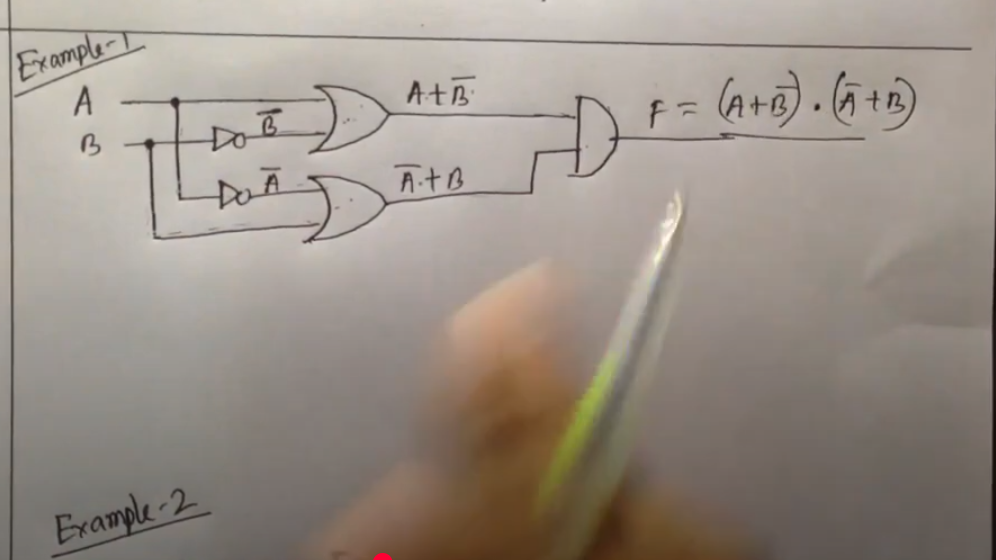 Example-1
A
B
B̅
A̅
A+B̅
A̅+B
F = (A+B̅)·(A̅+B)
Example-2